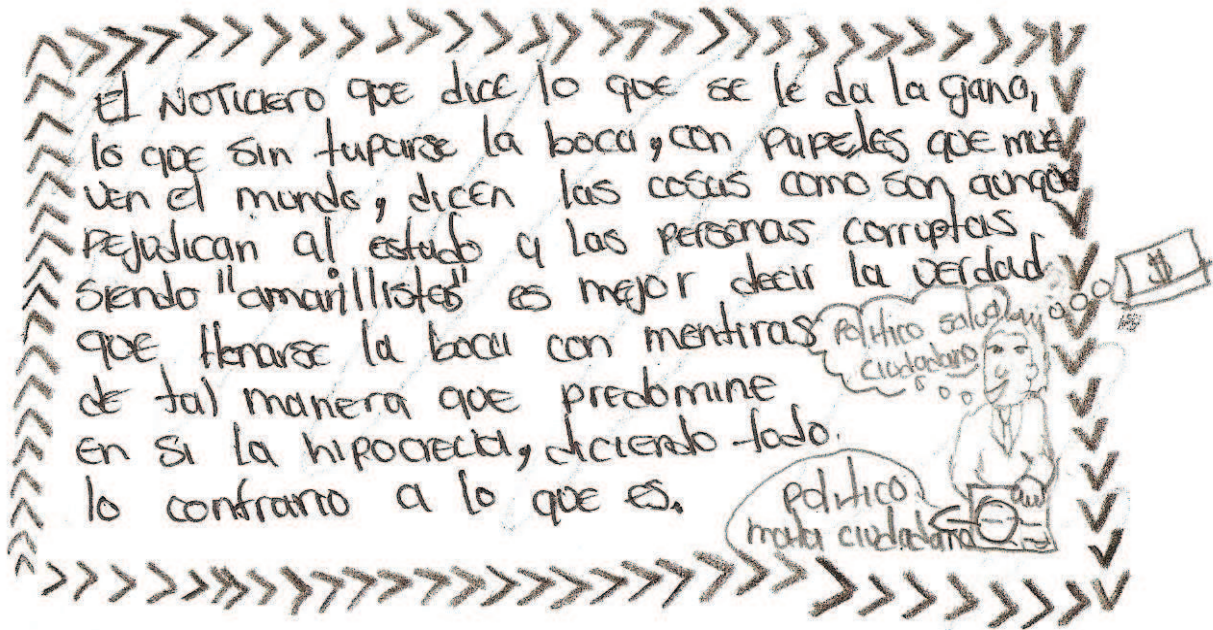 El NOTICIERO que dice lo que se le da la gana,
lo que sin taparse la boca, con papeles que mue
ven el mundo, dicen las cosas como son aunque
pejudican al estado y las personas corruptas
siendo "amarillistas" es mejor decir la verdad
que llenarse la boca con mentiras
de tal manera que predomine
en si la hipocrecia, diciendo todo
lo contrario a lo que es.
politico saluda
ciudadano
$
politico
mata ciudadano